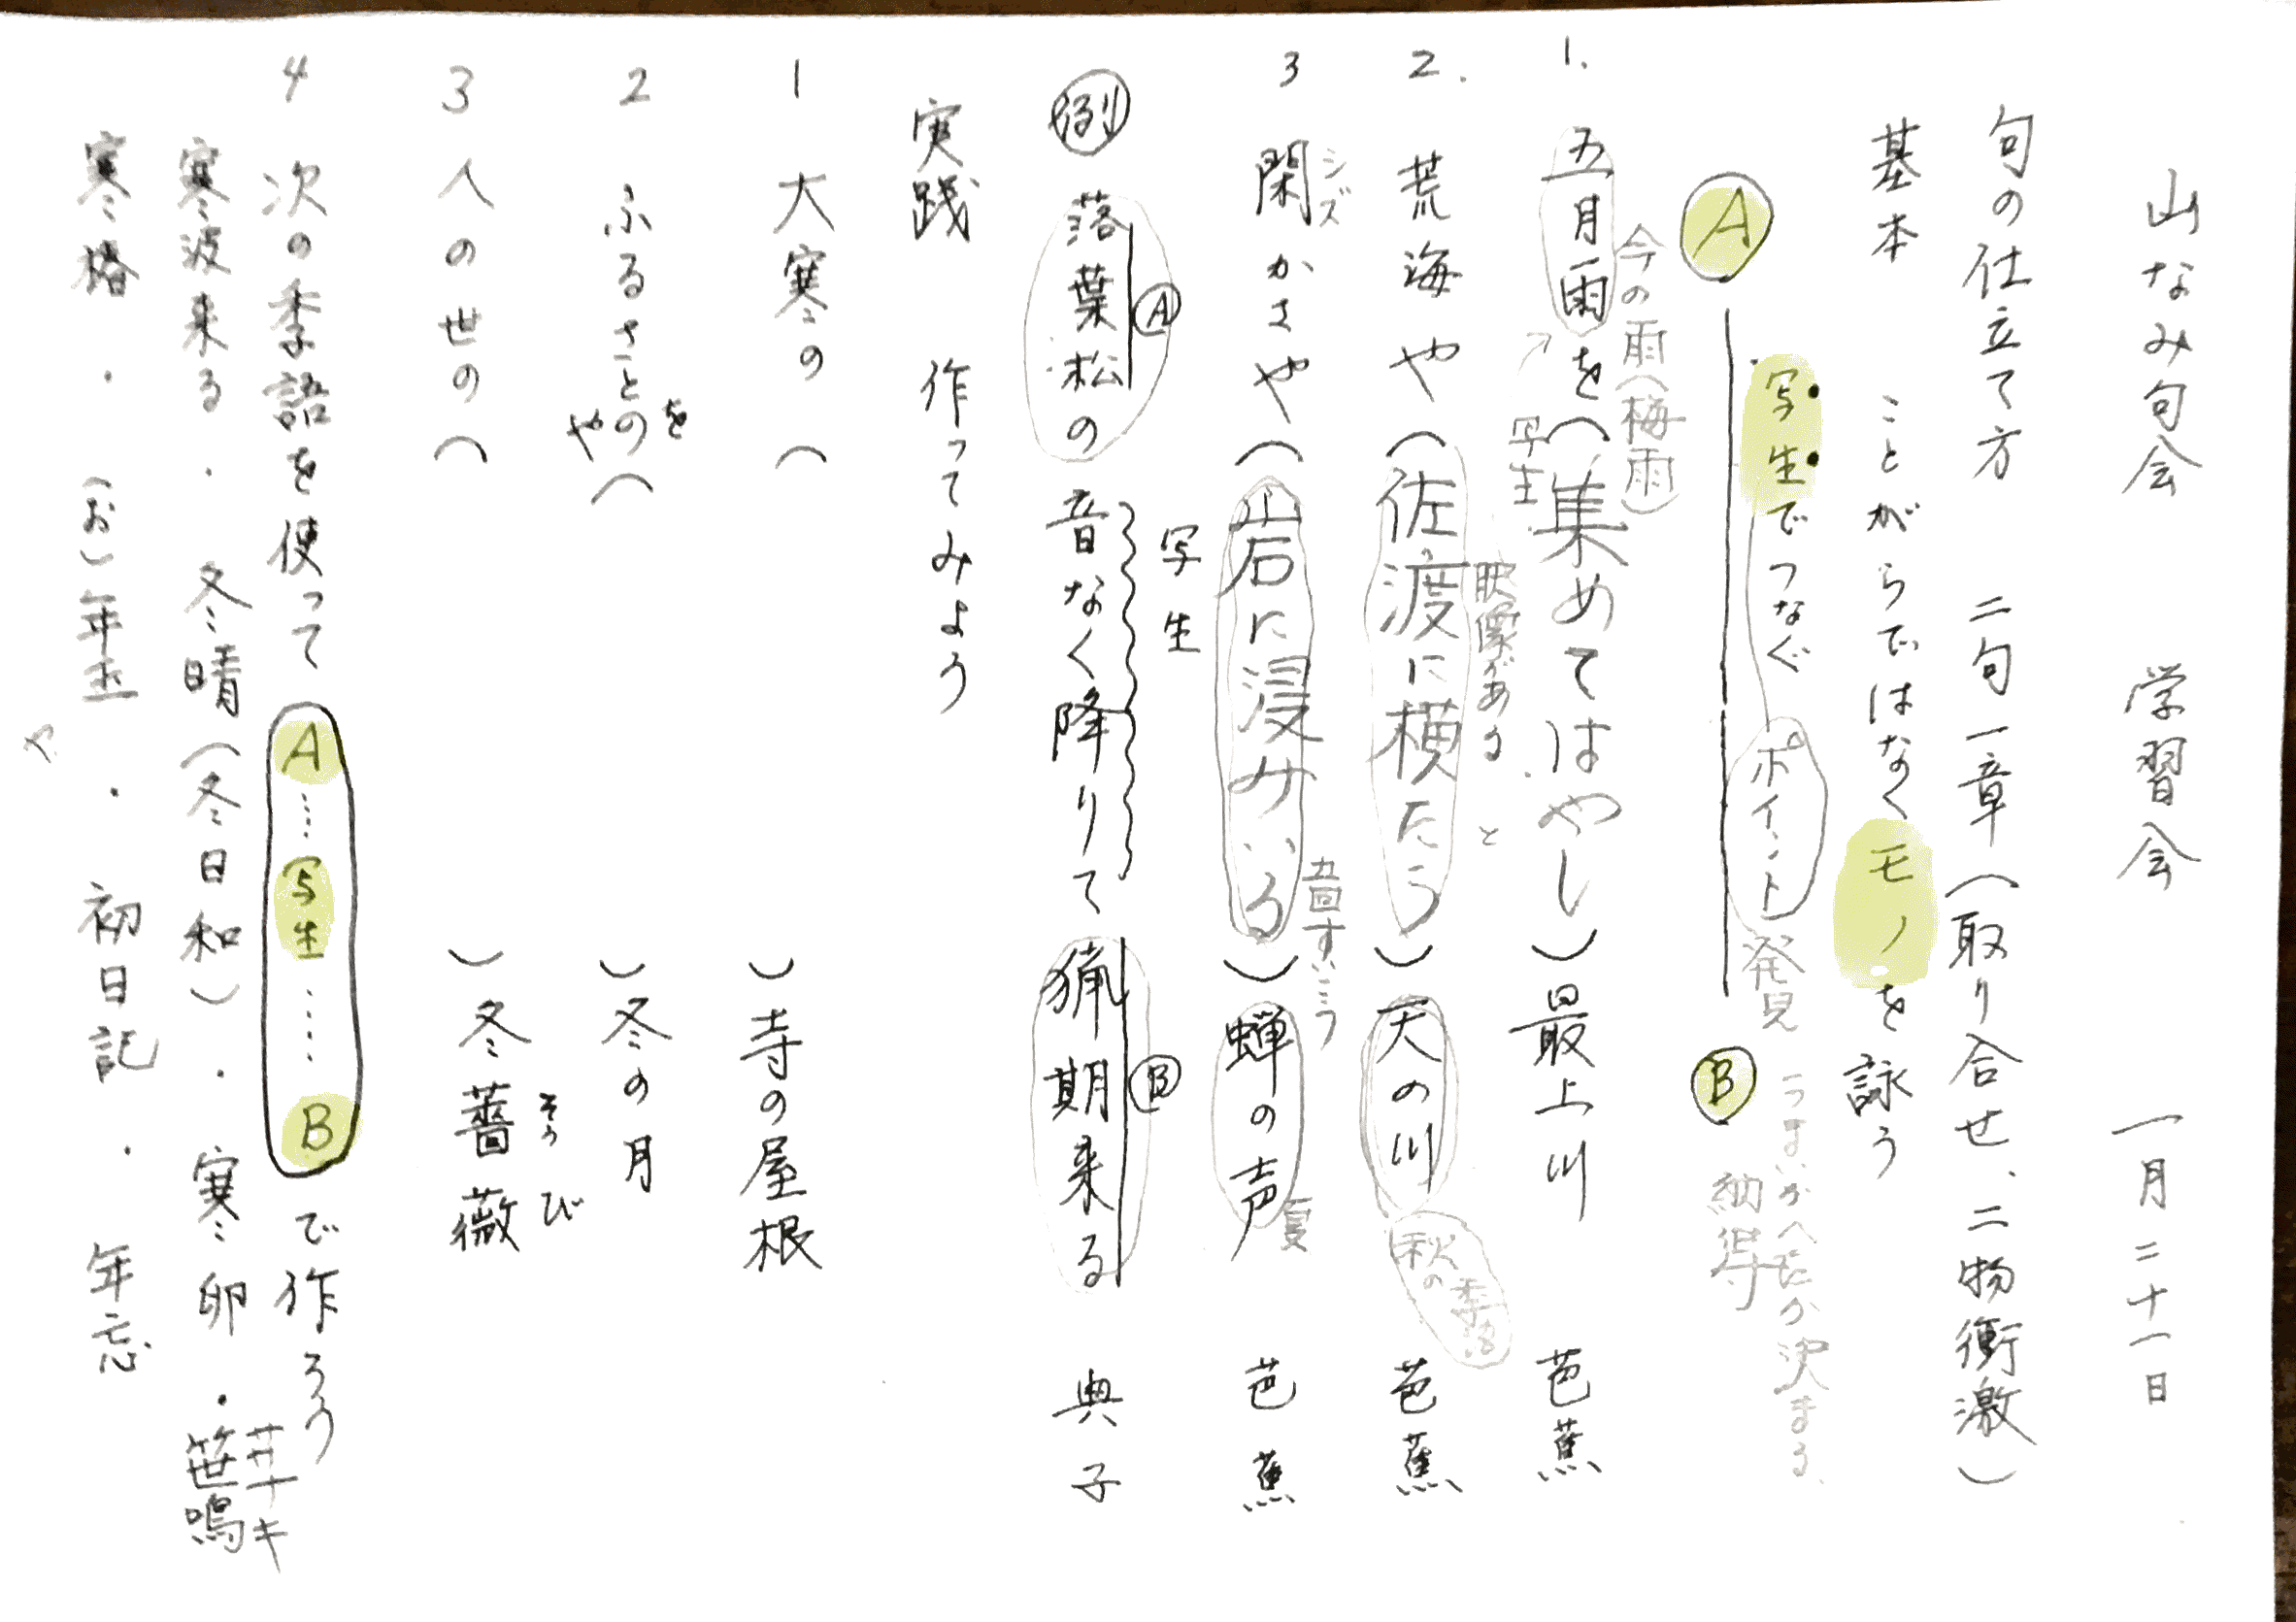 山なみ句会 学習会 一月二十一日
句の仕立て方 二句一章(取り合せ、二物衝激)
基本 ことがらではなくモノを詠う
うまいかへたか決まる、
Ⓐ 写生でつなぐ ポイント 発見 Ⓑ 納得
今の雨(梅雨)
1. 五月雨を(集めてはやし)最上川 芭蕉
写生
映像がある と
2. 荒海や(佐渡に横たう)天の川 芭蕉
秋の季語
シズ
3 閑かさや(岩に浸みいる)蝉の声 芭蕉
夏
Ⓐ 写生 Ⓑ
例 落葉松の音なく降りて猟期来る 典子
実践 作ってみよう
1 大寒の( )寺の屋根
を
2 ふるさとの( )冬の月
や
そうび
3 人の世の( )冬薔薇
4 次の季語を使って A……写生……B で作ろう
寒波来る・冬晴(冬日和)・寒卵・笹鳴
寒椿・(お)年玉・初日記・年忘
や